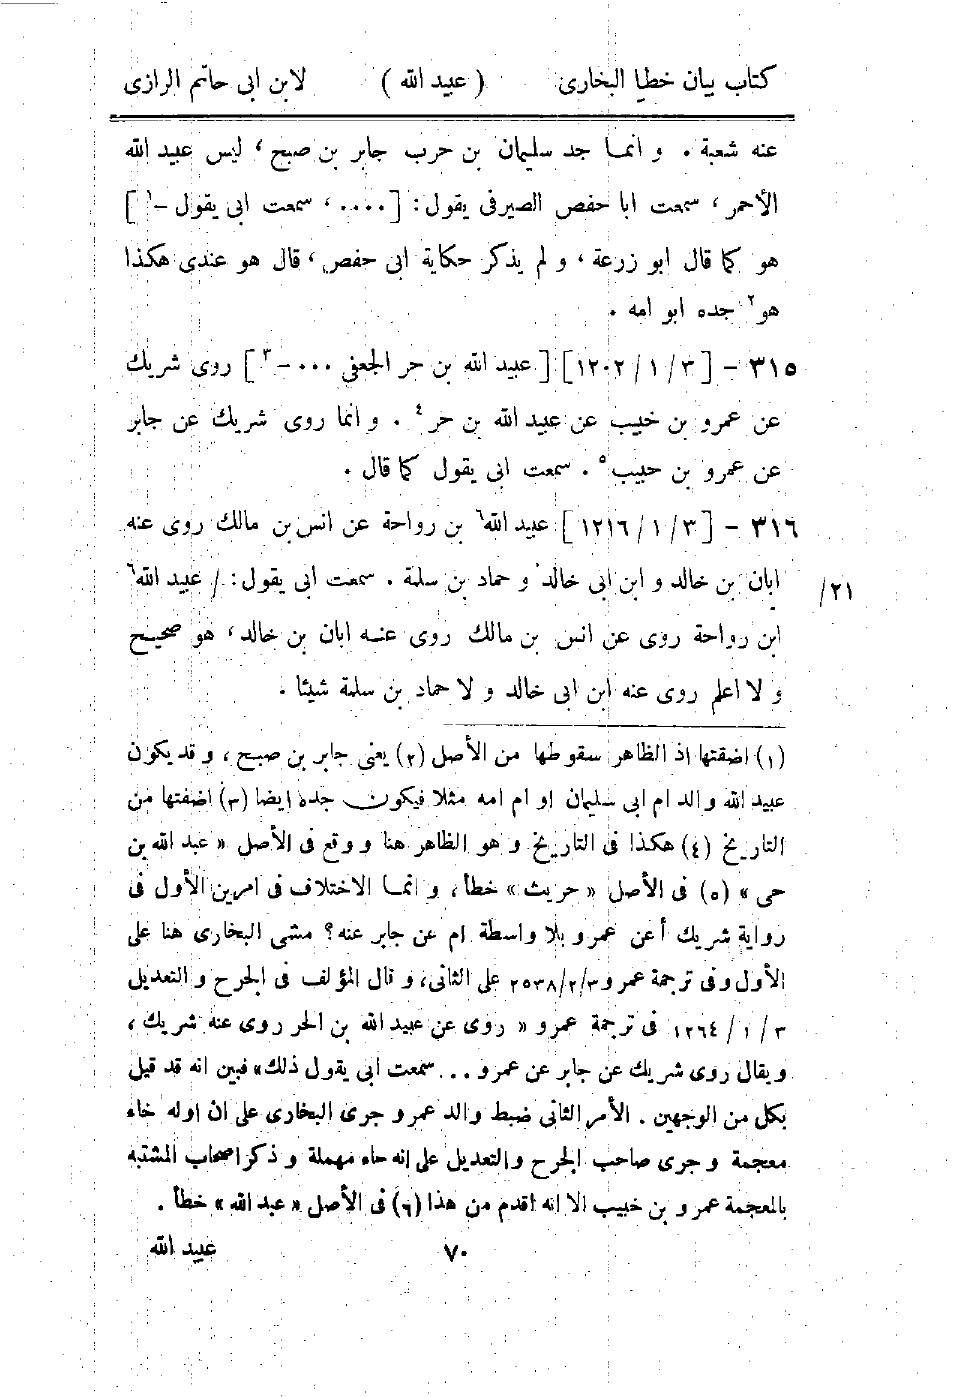 كتاب بيان خطأ البخارى ( عبيد الله ) لابن ابى حاتم الرازى
عنه شعبة . و انمـا جد سليمان بن حرب جابر بن صبح ، ليس عبيد الله
الأحمر ، سمعت ابا حفص الصيرفى يقول : [ .... ، سمعت ابى يقول -١ ]
هو كما قال ابو زرعة ، و لم يذكر حكاية ابى حفص ، قال هو عندى هكذا
هو٢ جده ابو امه .
٣١٥ - [ ٣ / ١ / ١٢٠٢ ] [ عبيد الله بن حر الجعفى ... -٣ ] روى شريك
عن عمرو بن خبيب عن عبيد الله بن حر٤ . و انما روى شريك عن جابر
عن عمرو بن حبيب٥ . سمعت ابى يقول كما قال .
٣١٦ - [ ٣ / ١ / ١٢١٦ ] عبيد الله٦ بن رواحة عن انس بن مالك روى عنه
ابان بن خالد و ابن ابى خالد و حماد بن سلمة . سمعت ابى يقول : / عبيد الله٦
٢١/
ابن رواحة روى عن انس بن مالك روى عنـه ابان بن خالد ، هو صحيـح
و لا اعلم روى عنه ابن ابى خالد و لا حماد بن سلمة شيئا .
(١) اضفتها اذ الظاهر سقوطها من الأصل (٢) يعنى جابر بن صبح ، و قد يكون
عبيد الله والد ام ابى سليمان او ام امه مثلا فيكون جده ايضا (٣) اضفتها من
التاريخ (٤) هكذا فى التاريخ و هو الظاهر هنا و وقع فى الأصل « عبد الله بن
حى » (٥) فى الأصل « حريث » خطأ ، و انمـا الاختلاف فى امرين الأول فى
رواية شريك أعن عمرو بلا واسطة ام عن جابر عنه ؟ مشى البخارى هنا على
الأول وفى ترجمة عمرو ٣/٢/٢٥٣٨ على الثانى، و قال المؤلف فى الجرح و التعديل
٣ / ١ / ١٢٦٤ فى ترجمة عمرو « روى عن عبيد الله بن الحر روى عنه شريك ،
ويقال روى شريك عن جابر عن عمرو ... سمعت ابى يقول ذلك» فبين انه قد قيل
بكل من الوجهين . الأمر الثانى ضبط والد عمرو جرى البخارى على ان اوله خاء
معجمة و جرى صاحب الجرح والتعديل على انه حاء مهملة و ذكر اصحاب المشتبه
بالمعجمة عمرو بن خبيب الا انه اقدم من هذا (٦) فى الأصل « عبد الله » خطأ .
٧٠ عبيد الله